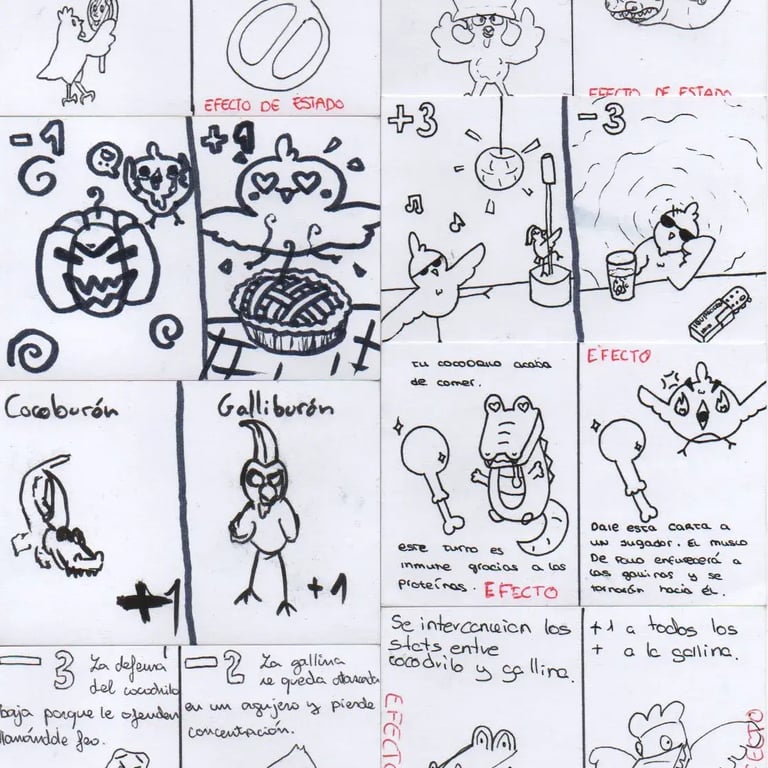 EFECTO DE ESTADO
EFECTO DE ESTADO
-1
+1
+3
-3
Cocoburón
+1
Galliburón
+1
tu cocodrilo acaba
de comer.
este turno es
inmune gracias a las
proteínas. EFECTO
EFECTO
Dale esta carta a
un jugador. El muslo
De Pollo enfurecerá a
las gallinas y se
tornarán hacia él.
-3 La defensa
del cocodrilo
baja porque le ofenden
llamándole feo.
-2 La gallina
se queda atascada
en un agujero y pierde
concentración.
Se intercambian los
stats entre
cocodrilo y gallina.
EFECTO
+1 a todos los
+ a la gallina.
EFECTO